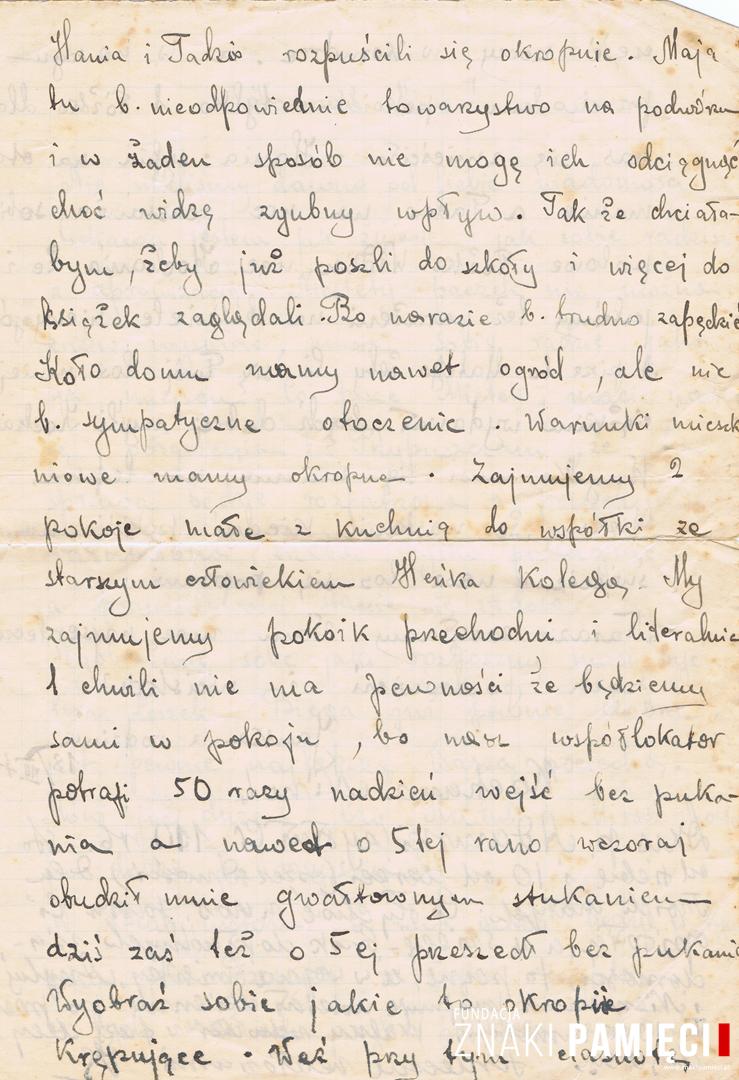 Hania i Tadzio rozpuścili się okropnie. Maja
tu b. nieodpowiednie towarzystwo na podwórzu
i w żaden sposób nie mogę ich odciągnąć
choć widzę zgubny wpływ. Tak że chciała-
bym, żeby już poszli do szkoły i więcej do
książek zaglądali. Bo narazie b. trudno zapędzić
Koło domu mamy nawet ogród, ale nie
b. sympatyczne otoczenie. Warunki mieszk
niowe mamy okropne. Zajmujemy 2
pokoje małe z kuchnią do współki ze
starszym człowiekiem Heńka Kolegą. My
zajmujemy pokoik przechodni i literalnie
1 chwili nie ma pewności że będziemy
sami w pokoju, bo nasz współlokator
potrafi 50 razy nadzień wejść bez puka-
nia a nawet o 5tej rano wczoraj
obudził mnie gwałtownym stukaniem
dziś zaś też o 5ej przeszedł bez pukania
Wyobraź sobie jakie to okropnie
Krępujące. Weź przy tym ciasnotę
FUNDACJA
ZNAKI PAMIĘCI